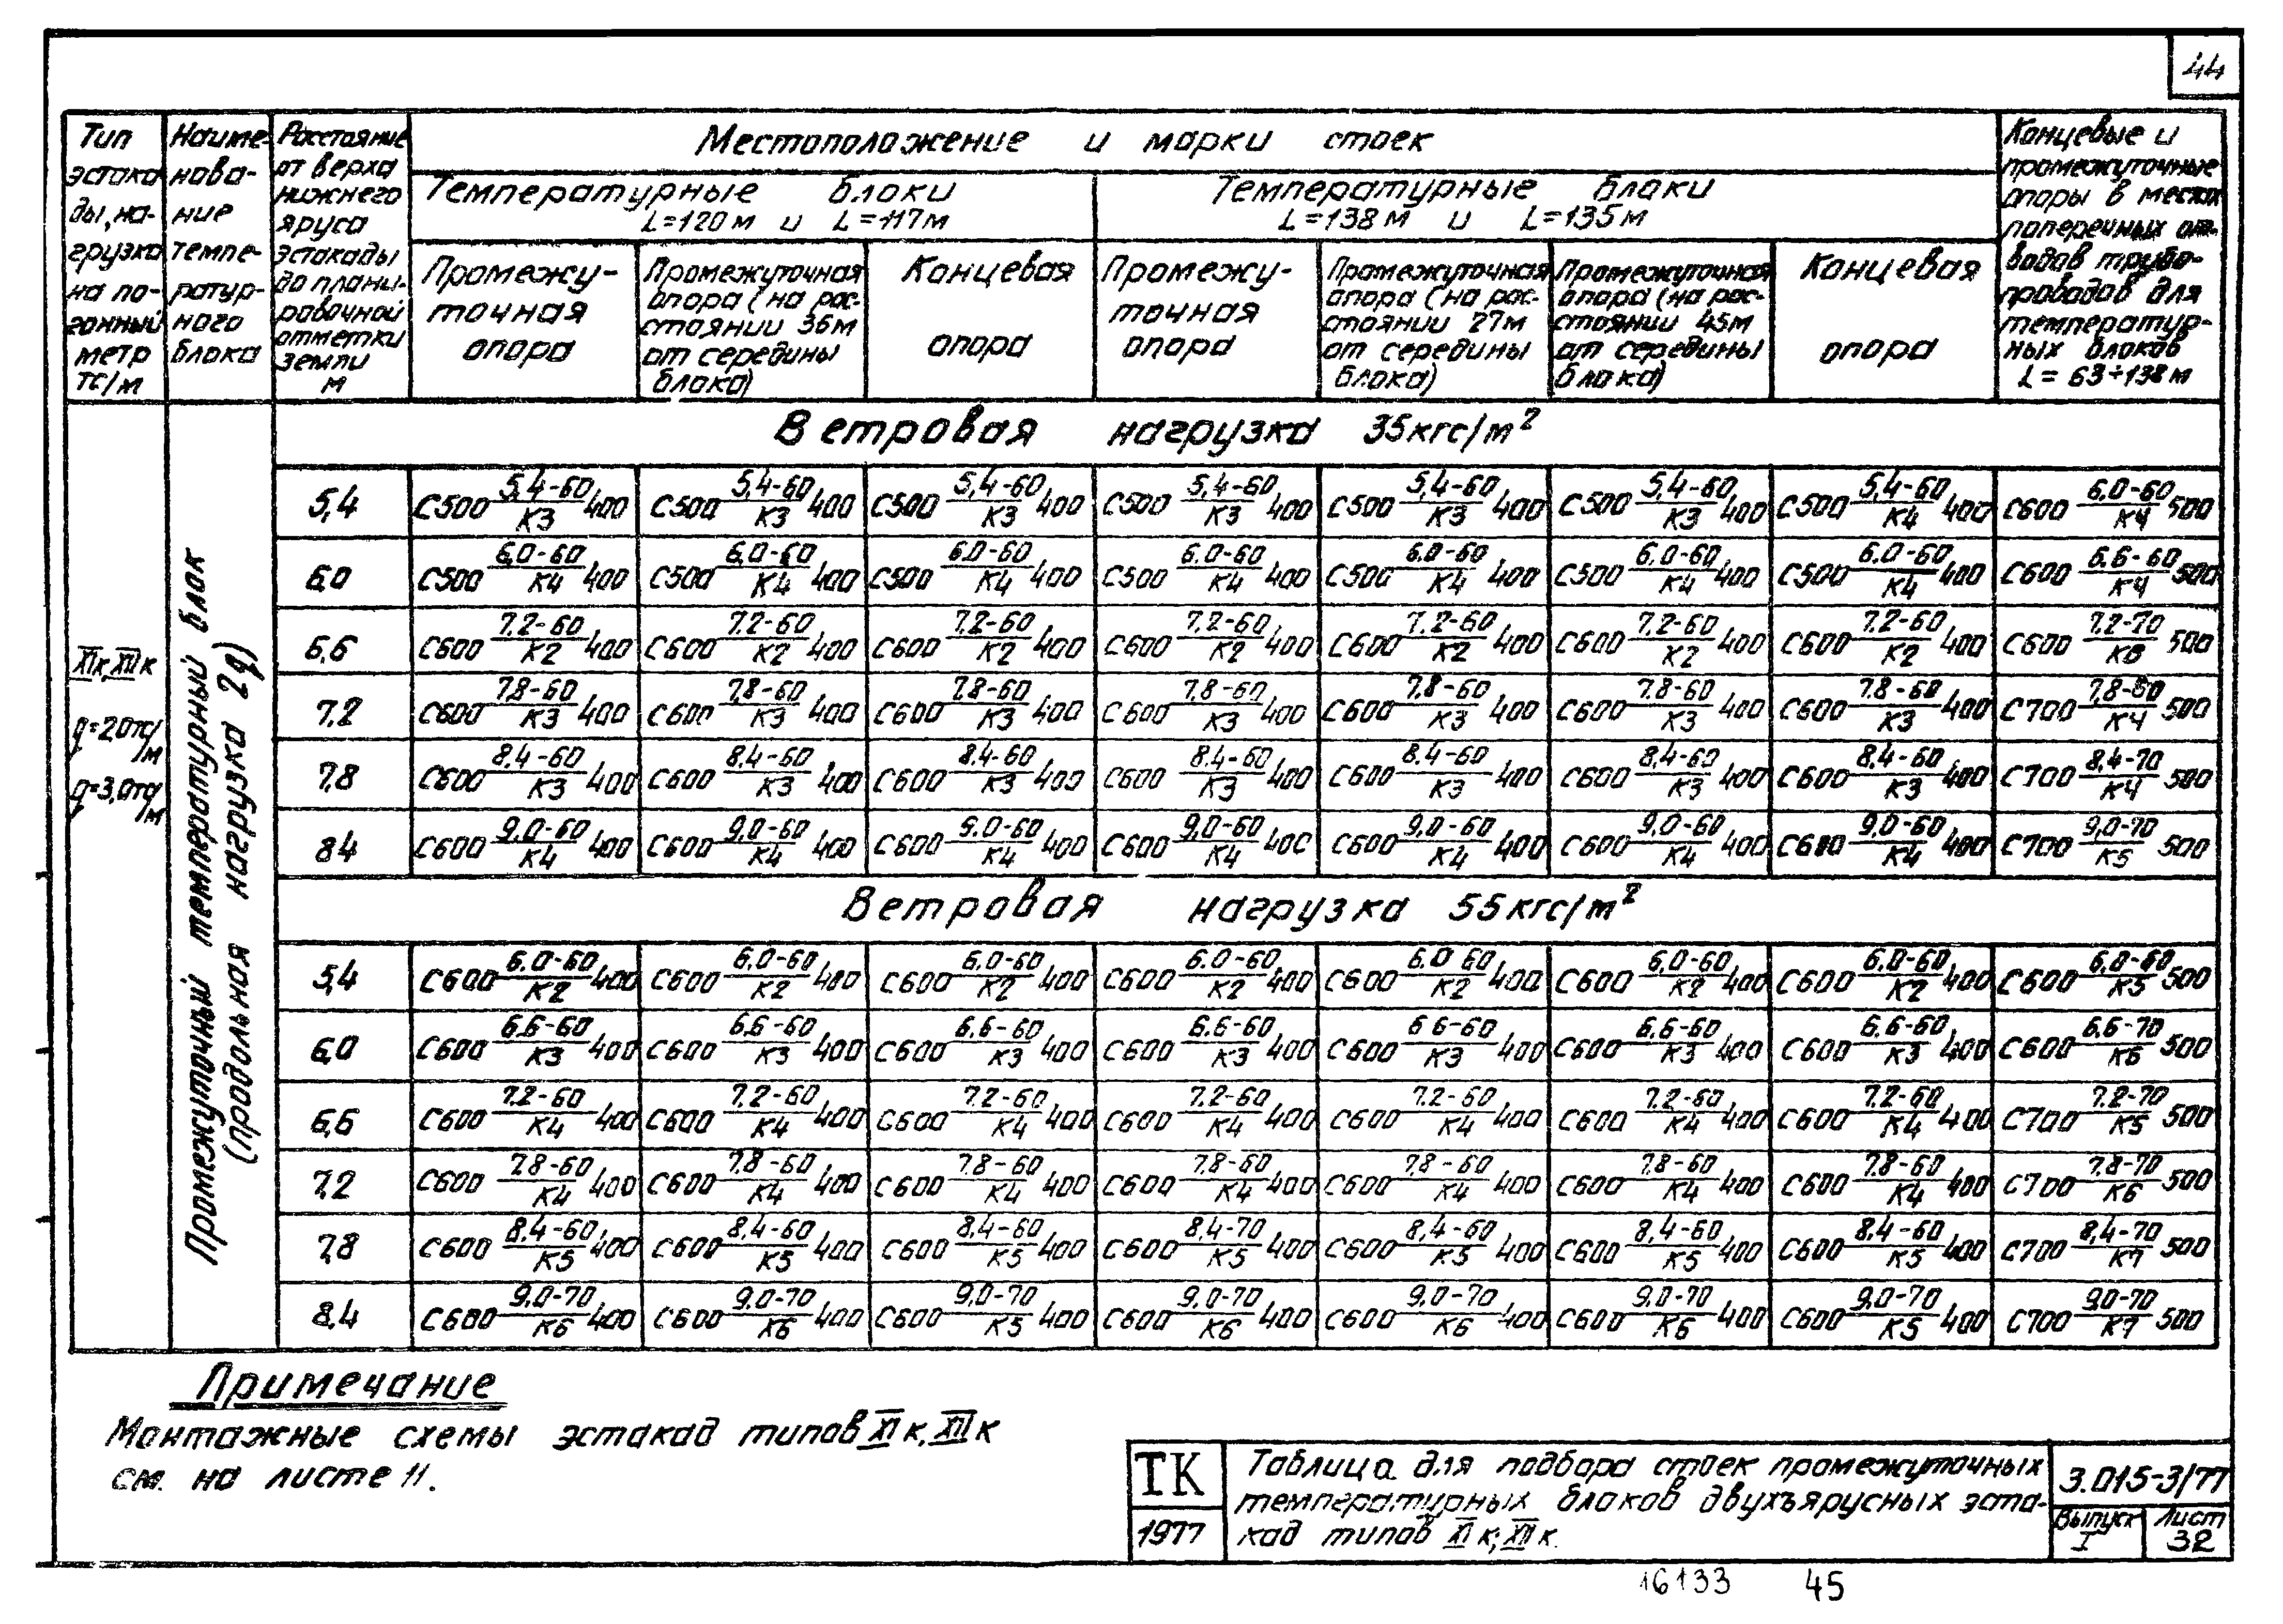 44
Тип эстакады, нагрузка на погонный метр тс/м
Наименование температурного блока
Расстояние от верха нижнего яруса эстакады до планировочной отметки земли м
Местоположение и марки стоек
Температурные блоки L=120м и L=117м
Температурные блоки L=138м и L=135м
Концевые и промежуточные опоры в местах поперечных отводов трубопроводов для температурных блоков L=63÷138м
Промежуточная опора
Промежуточная опора (на расстоянии 36м от середины блока)
Концевая опора
Промежуточная опора
Промежуточная опора (на расстоянии 27м от середины блока)
Промежуточная опора (на расстоянии 45м от середины блока)
Концевая опора
XIк, XIIк
q=2,0тс/м
q=3,0тс/м
Промежуточный температурный блок
(продольная нагрузка 2q)
Ветровая нагрузка 35кгс/м²
5,4 С500 5,4-60/К3 400 С500 5,4-60/К3 400 С500 5,4-60/К3 400 С500 5,4-60/К3 400 С500 5,4-60/К3 400 С500 5,4-60/К3 400 С500 5,4-60/К4 400 С600 6.0-60/К4 500
6,0 С500 6,0-60/К4 400 С500 6,0-60/К4 400 С500 6.0-60/К4 400 С500 6.0-60/К4 400 С500 6.0-60/К4 400 С500 6.0-60/К4 400 С500 6.0-60/К4 400 С600 6.6-60/К4 500
6,6 С600 7.2-60/К2 400 С600 7.2-60/К2 400 С600 7.2-60/К2 400 С600 7.2-60/К2 400 С600 7.2-60/К2 400 С600 7.2-60/К2 400 С600 7.2-60/К2 400 С600 7.2-70/К6 500
7.2 С600 7,8-60/К3 400 С600 7,8-60/К3 400 С600 7,8-60/К3 400 С600 7,8-60/К3 400 С600 7,8-60/К3 400 С600 7,8-60/К3 400 С600 7,8-60/К3 400 С700 7,8-60/К4 500
7,8 С600 8.4-60/К3 400 С600 8.4-60/К3 400 С600 8.4-60/К3 400 С600 8.4-60/К3 400 С600 8.4-60/К3 400 С600 8.4-60/К3 400 С600 8.4-60/К3 400 С700 8,4-70/К4 500
8.4 С600 9.0-60/К4 400 С600 9,0-60/К4 400 С600 9.0-60/К4 400 С600 9,0-60/К4 400 С600 9,0-60/К4 400 С600 9.0-60/К4 400 С600 9,0-60/К4 400 С700 9,0-70/К5 500
Ветровая нагрузка 55кгс/м²
5,4 С600 6.0-60/К2 400 С600 6.0-60/К2 400 С600 6.0-60/К2 400 С600 6.0-60/К2 400 С600 6.0-60/К2 400 С600 6.0-60/К2 400 С600 6.0-60/К2 400 С600 6.0-60/К5 500
6,0 С600 6.6-60/К3 400 С600 6.6-60/К3 400 С600 6.6-60/К3 400 С600 6.6-60/К3 400 С600 6.6-60/К3 400 С600 6.6-60/К3 400 С600 6.6-60/К3 400 С600 6,6-70/К6 500
6,6 С600 7.2-60/К4 400 С600 7.2-60/К4 400 С600 7.2-60/К4 400 С600 7.2-60/К4 400 С600 7.2-60/К4 400 С600 7.2-60/К4 400 С600 7.2-60/К4 400 С700 7.2-70/К5 500
7,2 С600 7.8-60/К4 400 С600 7.8-60/К4 400 С600 7.8-60/К4 400 С600 7.8-60/К4 400 С600 7.8-60/К4 400 С600 7.8-60/К4 400 С600 7.8-60/К4 400 С700 7.8-70/К6 500
7,8 С600 8,4-60/К5 400 С600 8,4-60/К5 400 С600 8,4-60/К5 400 С600 8,4-70/К5 400 С600 8,4-60/К5 400 С600 8,4-60/К5 400 С600 8,4-60/К5 400 С700 8,4-70/К7 500
8,4 С600 9,0-70/К6 400 С600 9,0-70/К6 400 С600 9,0-70/К5 400 С600 9,0-70/К6 400 С600 9,0-70/К6 400 С600 9,0-70/К6 400 С600 9,0-70/К5 400 С700 9,0-70/К7 500
Примечание
Монтажные схемы эстакад типов XIк, XIIк
см. на листе 11.
ТК
1977
Таблица для подбора стоек промежуточных
температурных блоков двухъярусных эста-
кад типов XIк; XIIк.
3.015-3/77
Выпуск I
Лист 32
16133 45